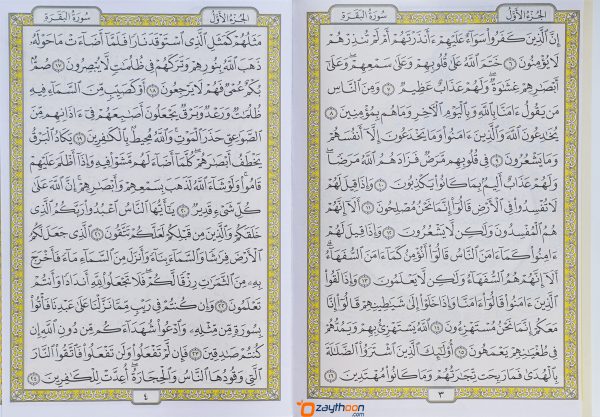 الجزء الأول
سورة البقرة
إِنَّ ٱلَّذِينَ كَفَرُوا۟ سَوَآءٌ عَلَيْهِمْ ءَأَنذَرْتَهُمْ أَمْ لَمْ تُنذِرْهُمْ
لَا يُؤْمِنُونَ ٦ خَتَمَ ٱللَّهُ عَلَىٰ قُلُوبِهِمْ وَعَلَىٰ سَمْعِهِمْ ۖ وَعَلَىٰٓ
أَبْصَٰرِهِمْ غِشَٰوَةٌ ۖ وَلَهُمْ عَذَابٌ عَظِيمٌ ٧ وَمِنَ ٱلنَّاسِ
مَن يَقُولُ ءَامَنَّا بِٱللَّهِ وَبِٱلْيَوْمِ ٱلْءَاخِرِ وَمَا هُم بِمُؤْمِنِينَ ٨
يُخَٰدِعُونَ ٱللَّهَ وَٱلَّذِينَ ءَامَنُوا۟ وَمَا يَخْدَعُونَ إِلَّآ أَنفُسَهُمْ
وَمَا يَشْعُرُونَ ٩ فِى قُلُوبِهِم مَّرَضٌ فَزَادَهُمُ ٱللَّهُ مَرَضًا ۖ
وَلَهُمْ عَذَابٌ أَلِيمٌۢ بِمَا كَانُوا۟ يَكْذِبُونَ ١٠ وَإِذَا قِيلَ لَهُمْ
لَا تُفْسِدُوا۟ فِى ٱلْأَرْضِ قَالُوٓا۟ إِنَّمَا نَحْنُ مُصْلِحُونَ ١١ أَلَآ إِنَّهُمْ
هُمُ ٱلْمُفْسِدُونَ وَلَٰكِن لَّا يَشْعُرُونَ ١٢ وَإِذَا قِيلَ لَهُمْ
ءَامِنُوا۟ كَمَآ ءَامَنَ ٱلنَّاسُ قَالُوٓا۟ أَنُؤْمِنُ كَمَآ ءَامَنَ ٱلسُّفَهَآءُ ۗ
أَلَآ إِنَّهُمْ هُمُ ٱلسُّفَهَآءُ وَلَٰكِن لَّا يَعْلَمُونَ ١٣ وَإِذَا لَقُوا۟
ٱلَّذِينَ ءَامَنُوا۟ قَالُوٓا۟ ءَامَنَّا وَإِذَا خَلَوْا۟ إِلَىٰ شَيَٰطِينِهِمْ قَالُوٓا۟ إِنَّا
مَعَكُمْ إِنَّمَا نَحْنُ مُسْتَهْزِءُونَ ١٤ ٱللَّهُ يَسْتَهْزِئُ بِهِمْ وَيَمُدُّهُمْ
فِى طُغْيَٰنِهِمْ يَعْمَهُونَ ١٥ أُو۟لَٰٓئِكَ ٱلَّذِينَ ٱشْتَرَوُا۟ ٱلضَّلَٰلَةَ
بِٱلْهُدَىٰ فَمَا رَبِحَت تِّجَٰرَتُهُمْ وَمَا كَانُوا۟ مُهْتَدِينَ ١٦
٣
الجزء الأول
سورة البقرة
مَثَلُهُمْ كَمَثَلِ ٱلَّذِى ٱسْتَوْقَدَ نَارًا فَلَمَّآ أَضَآءَتْ مَا حَوْلَهُۥ
ذَهَبَ ٱللَّهُ بِنُورِهِمْ وَتَرَكَهُمْ فِى ظُلُمَٰتٍ لَّا يُبْصِرُونَ ١٧ صُمٌّۢ
بُكْمٌ عُمْىٌ فَهُمْ لَا يَرْجِعُونَ ١٨ أَوْ كَصَيِّبٍ مِّنَ ٱلسَّمَآءِ فِيهِ
ظُلُمَٰتٌ وَرَعْدٌ وَبَرْقٌ يَجْعَلُونَ أَصَٰبِعَهُمْ فِىٓ ءَاذَانِهِم مِّنَ
ٱلصَّوَٰعِقِ حَذَرَ ٱلْمَوْتِ ۚ وَٱللَّهُ مُحِيطٌۢ بِٱلْكَٰفِرِينَ ١٩ يَكَادُ ٱلْبَرْقُ
يَخْطَفُ أَبْصَٰرَهُمْ ۖ كُلَّمَآ أَضَآءَ لَهُم مَّشَوْا۟ فِيهِ وَإِذَآ أَظْلَمَ عَلَيْهِمْ
قَامُوا۟ ۚ وَلَوْ شَآءَ ٱللَّهُ لَذَهَبَ بِسَمْعِهِمْ وَأَبْصَٰرِهِمْ ۚ إِنَّ ٱللَّهَ عَلَىٰ
كُلِّ شَىْءٍ قَدِيرٌ ٢٠ يَٰٓأَيُّهَا ٱلنَّاسُ ٱعْبُدُوا۟ رَبَّكُمُ ٱلَّذِى
خَلَقَكُمْ وَٱلَّذِينَ مِن قَبْلِكُمْ لَعَلَّكُمْ تَتَّقُونَ ٢١ ٱلَّذِى جَعَلَ لَكُمُ
ٱلْأَرْضَ فِرَٰشًا وَٱلسَّمَآءَ بِنَآءً وَأَنزَلَ مِنَ ٱلسَّمَآءِ مَآءً فَأَخْرَجَ
بِهِۦ مِنَ ٱلثَّمَرَٰتِ رِزْقًا لَّكُمْ ۖ فَلَا تَجْعَلُوا۟ لِلَّهِ أَندَادًا وَأَنتُمْ
تَعْلَمُونَ ٢٢ وَإِن كُنتُمْ فِى رَيْبٍ مِّمَّا نَزَّلْنَا عَلَىٰ عَبْدِنَا فَأْتُوا۟
بِسُورَةٍ مِّن مِّثْلِهِۦ وَٱدْعُوا۟ شُهَدَآءَكُم مِّن دُونِ ٱللَّهِ إِن
كُنتُمْ صَٰدِقِينَ ٢٣ فَإِن لَّمْ تَفْعَلُوا۟ وَلَن تَفْعَلُوا۟ فَٱتَّقُوا۟ ٱلنَّارَ
ٱلَّتِى وَقُودُهَا ٱلنَّاسُ وَٱلْحِجَارَةُ ۖ أُعِدَّتْ لِلْكَٰفِرِينَ ٢٤
٤
Ozaythoon.com